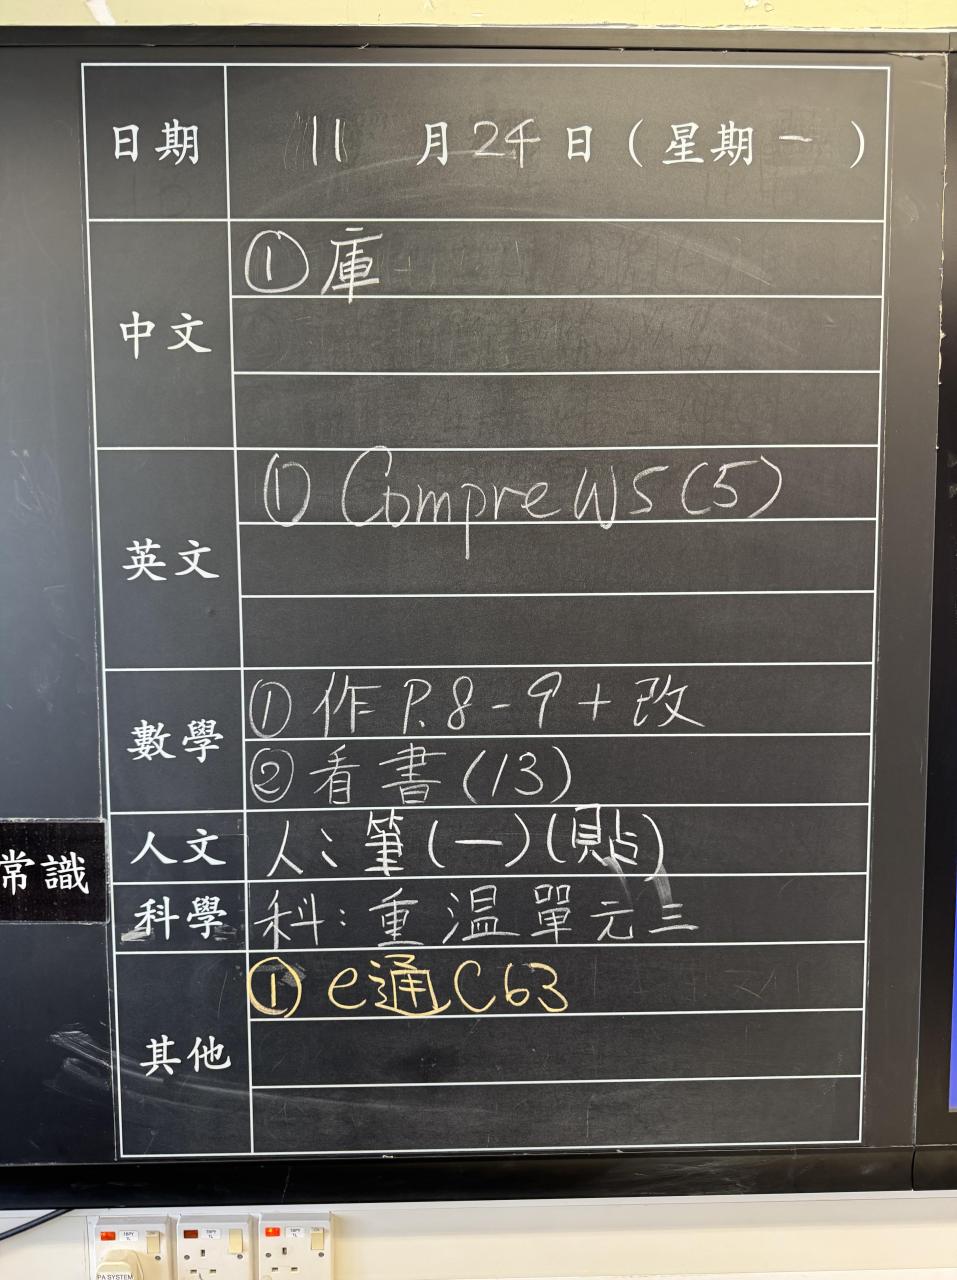 日期 11 月 24 日 ( 星期 一 )
中文 ① 庫
英文 ① Compre WS (5)
數學 ① 作 P.8-9 + 改
② 看書 (13)
人文 人: 筆 (一) (貼)
常識
科學 科: 重溫單元三
其他 ① e通 C63
PA SYSTEM